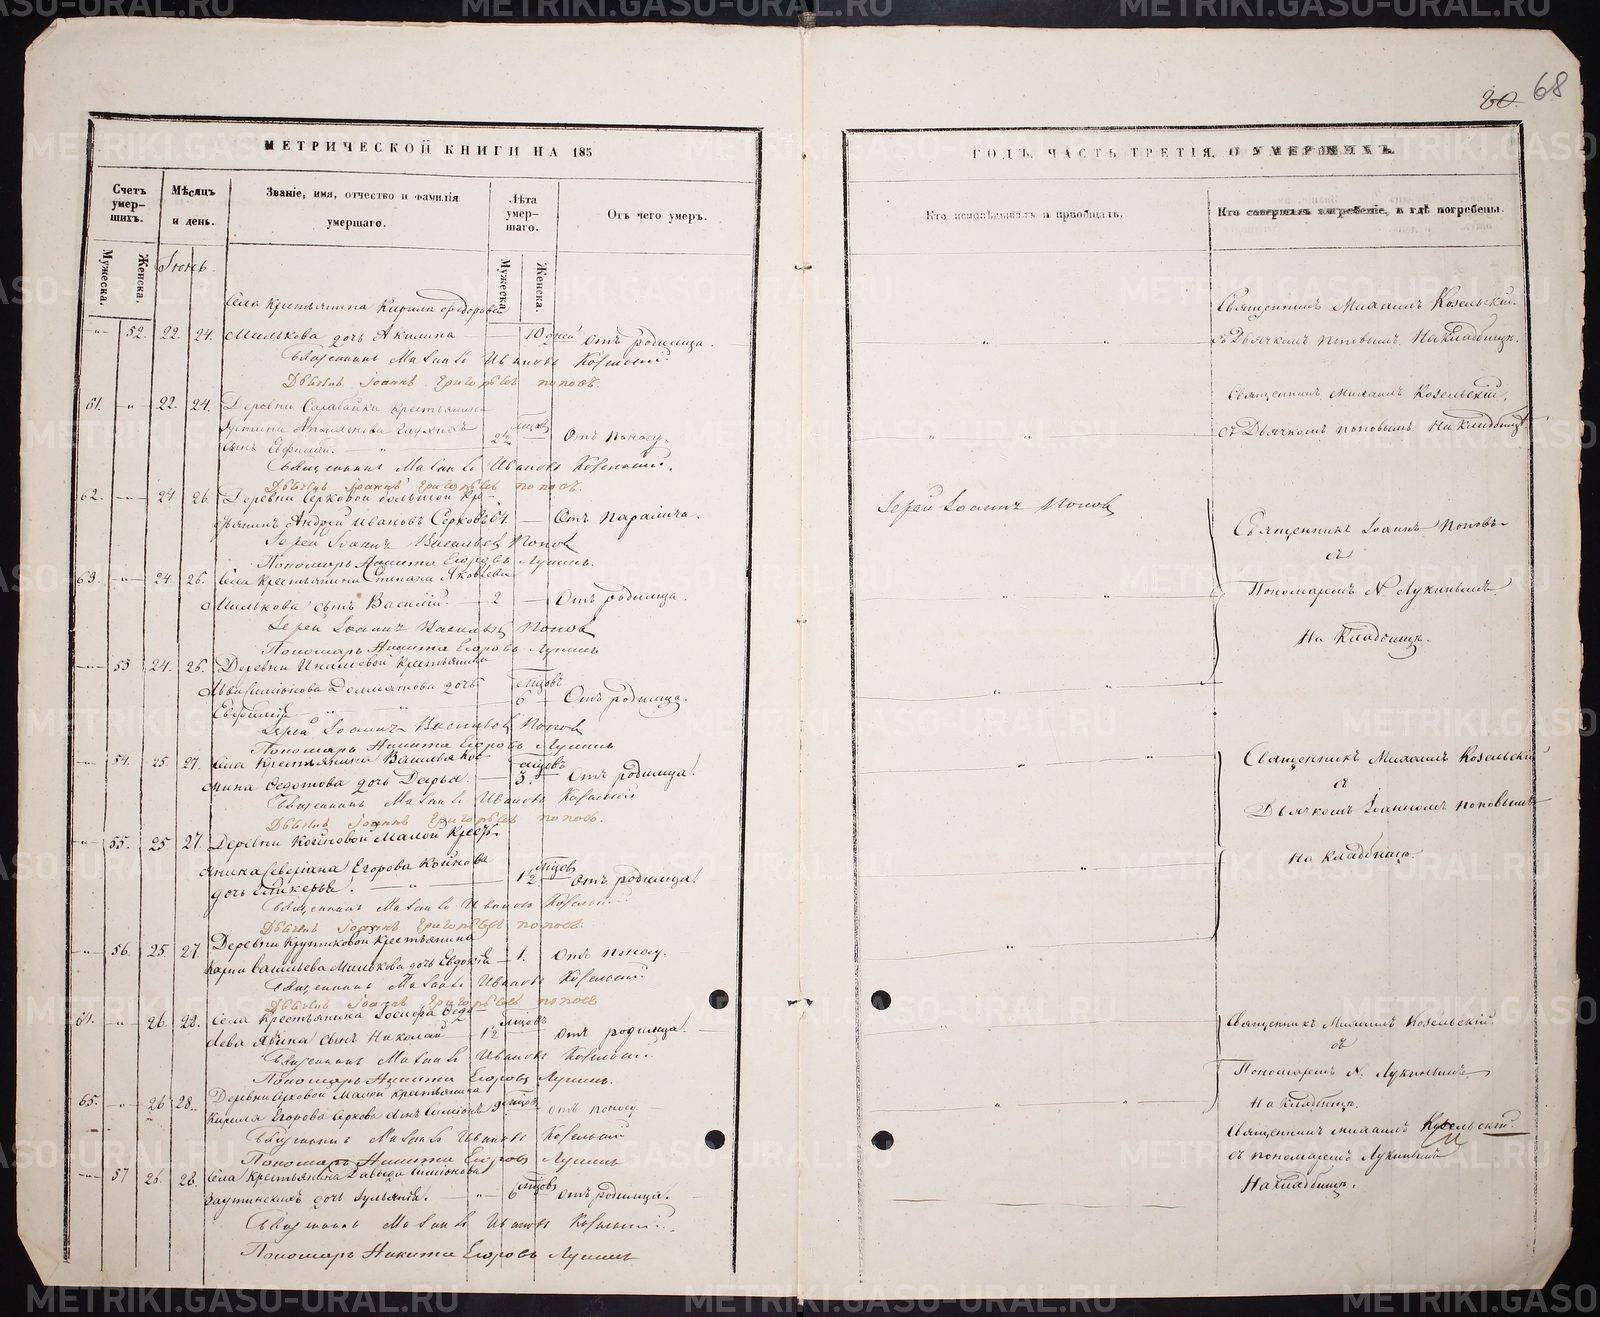 20. 68
МЕТРИЧЕСКОЙ КНИГИ НА 185
Счетъ умер-шихъ.
Мѣсяцъ и день.
Званіе, имя, отчество и фамилія умершаго.
Лѣта умер-шаго.
Отъ чего умеръ.
Мужеска. Женска. Іюнь. Мужеска. Женска.
Села Крестьянина Кирила Ѳедорова
52. 22. 24. Милькова дочь Акилина 10 дней Отъ родимца.
Священникъ Михаилъ Ивановъ Козельскій
Дьячекъ Іоаннъ Григорьевъ Поповъ.
61. 22. 24. Деревни Крестьянина
сынъ Евфимій. 2½ мѣсцов Отъ Поносу.
Священникъ Михаилъ Ивановъ Козельскій.
Дьячекъ Іоаннъ Григорьевъ Поповъ.
62. 24 26. Деревни Серковой большой Кре-
стьянинъ Андрей Ивановъ Серковъ 64 Отъ Паралича.
Іерей Іоаннъ Васильевъ Поповъ
Пономарь Никита Егоровъ Лукинъ.
63. 24. 26. Села Крестьянина Степана Яковлева
Милькова сынъ Василій. 2 Отъ родимца.
Іерей Іоаннъ Васильевъ Поповъ
Пономарь Никита Егоровъ Лукинъ
53 24. 26. Деревни Крестьянина
дочь
Евфимія 6 мѣсцовъ Отъ родимца.
Іерей Іоаннъ Васильевъ Поповъ
Пономарь Никита Егоровъ Лукинъ
54. 25. 27. Села Крестьянина
Ѳедотова дочь Дарья. 3. мѣсцовъ Отъ родимца.
Священникъ Михаилъ Ивановъ Козельскій
Дьячекъ Іоаннъ Григорьевъ Поповъ.
55. 25 27 Деревни Койновой Малой Кресть-
янина Северіана Егорова Койнова
дочь Гликерья. 1½ мѣсцов Отъ родимца.
Священникъ Михаилъ Ивановъ Козельскій
Дьячекъ Іоаннъ Григорьевъ Поповъ.
56. 25 27 Деревни Крутиковой Крестьянина
Карпа Васильева Милькова дочь Евдокія 1. Отъ поносу.
Священникъ Михаилъ Ивановъ Козельскій
Дьячекъ Іоаннъ Григорьевъ Поповъ
64. 26. 28. Села Крестьянина Іосифа
сынъ Николай 1½ мѣсцовъ Отъ родимца.
Священникъ Михаилъ Ивановъ Козельскій
Пономарь Никита Егоровъ Лукинъ.
65. 26 28. Деревни Серковой Малой Крестьянина
Кирила Егорова Серкова сынъ Симіонъ 9 мѣсцов отъ поносу
Священникъ Михаилъ Ивановъ Козельскій
Пономарь Никита Егоровъ Лукинъ
57 26. 28. Села Крестьянина Давыда Симіонова
дочь Іульянія. 6 мѣсцовъ Отъ родимца.
Священникъ Михаилъ Ивановъ Козельскій
Пономарь Никита Егоровъ Лукинъ
ГОДЪ. ЧАСТЬ ТРЕТІЯ, О УМЕРШИХЪ.
Кто исповѣдывалъ и пріобщалъ.
Кто совершалъ погребеніе, и гдѣ погребены.
Священникъ Михаилъ Козельскій.
съ Дьячкомъ Поповымъ. На Кладбищѣ.
Священникъ Михаилъ Козельскій,
съ Дьячкомъ Поповымъ На Кладбищѣ.
Іерей Іоаннъ Попов
Священникъ Іоаннъ Поповъ
съ
Пономаремъ Н Лукинымъ
На Кладбищѣ.
Священникъ Михаилъ Козельскій
съ
Дьячкомъ Іоанномъ Поповымъ
На Кладбищѣ.
Священникъ Михаилъ Козельскій.
съ
Пономаремъ Н. Лукинымъ
На Кладбищѣ.
Священникъ Михаилъ Козельскій
съ пономаремъ Лукинымъ
На Кладбищѣ.
METRIKI.GASO-URAL.RU